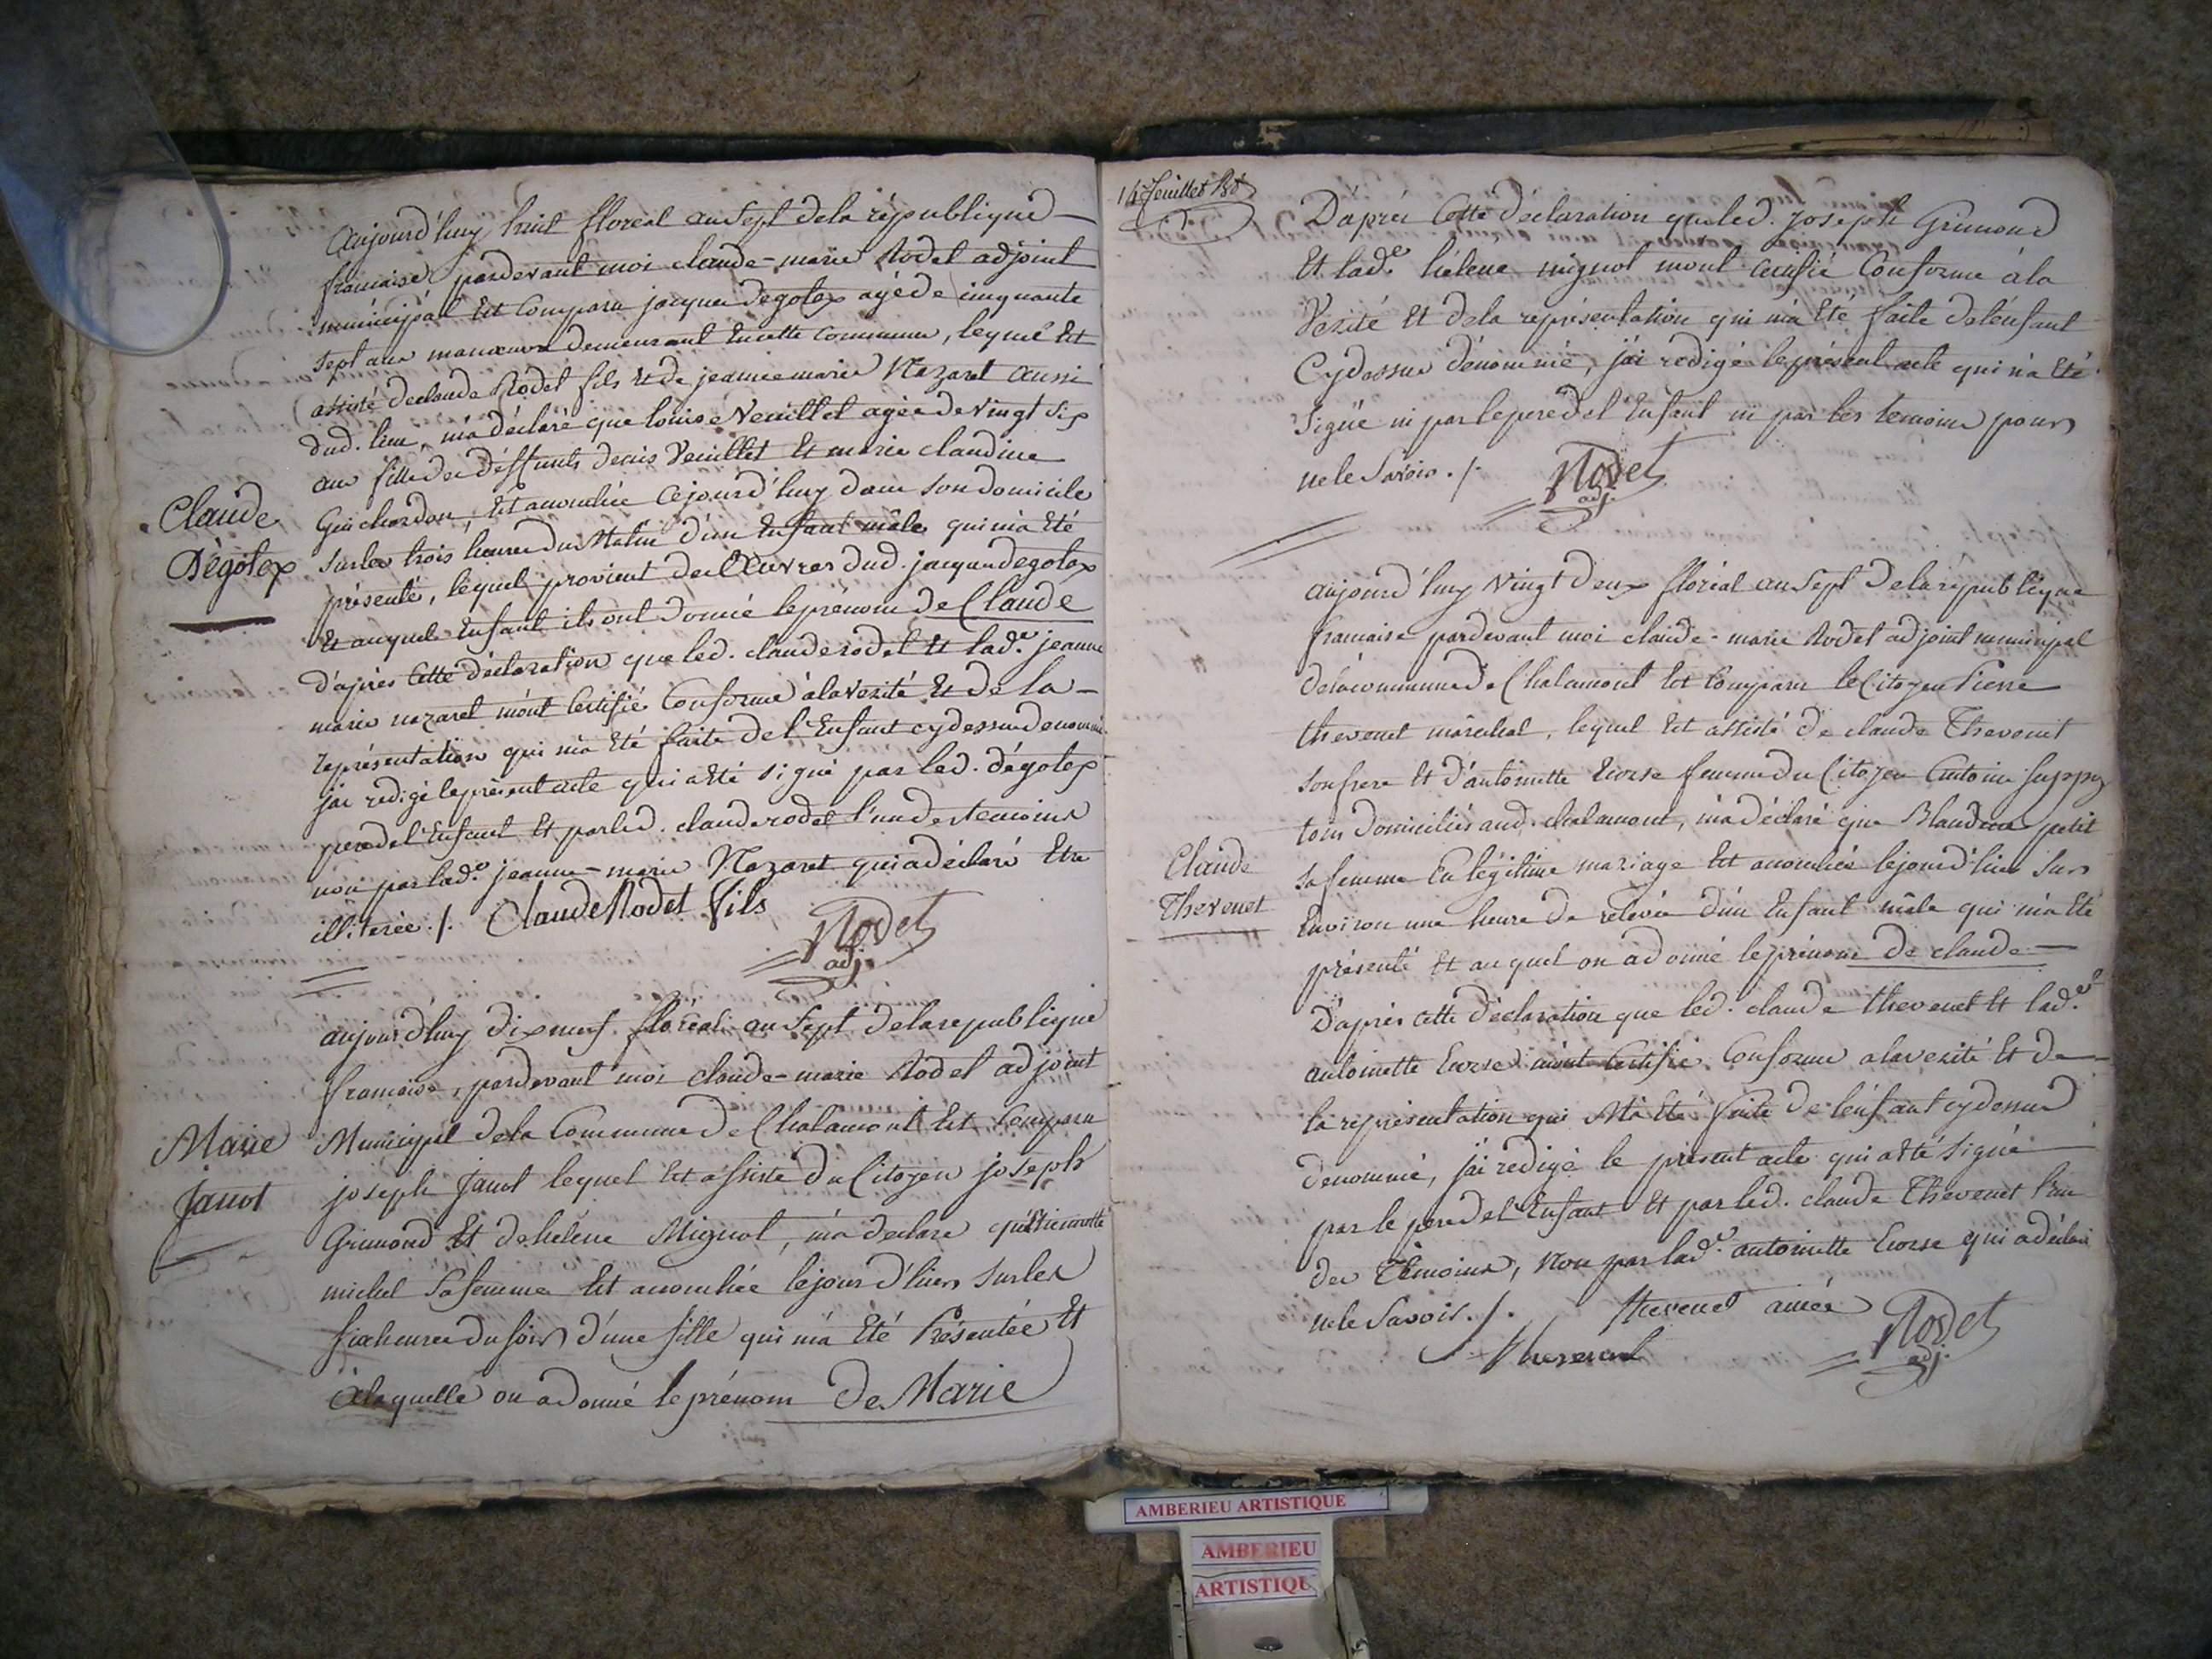 aujourd'huy huit floreal an Sept dela république
francaise pardevant moi claude-marie Rodet adjoint
municipal Est Comparu jacques Degolex agé de cinquante
sept ans manoeuvre demeurant En cette commune, lequel Est
assisté de claude Rodet fils et de jeanne marie Nazaret aussi
dud. lieu, m'a déclaré que louise Veuillet agée de vingt six
ans fille des deffunts denis Veuillet Et marie claudine
Guichardon, Est accouchée cejourd'huy dans son domicile
sur les trois heures du Matin d'un Enfant mâle qui m'a Eté
présenté, lequel provient des OEuvres dud. jacques degolex
Et auquel Enfant ils ont donné leprénom de Claude
Claude
Dégolex
d'après Cette déclaration que led. claude rodet Et lade. jeanne
marie nazaret m'ont Certifié Conforme à la vérité Et de la
représentation qui m'a Eté faite de l'Enfant cy dessus denommé
j'ai redigé le présent acte qui a été signé par led. dégolex
pere del'Enfant Et par led. claude rodet l'un des temoins
non par lade. jeanne-marie Nazaret qui a déclaré Etre
illiterée ./. Claude Rodet fils
Rodet
adj.
aujourd'huy dixneuf floréal an Sept dela republique
francaise, pardevant moi claude-marie Rodet adjoint
Municipal dela Commune de Chalamont Est Comparu
Marie
Janot
joseph Janot lequel Est assisté du Citoyen joseph
Grimond Et de heléne Mignot, m'a declaré qu'Etiennette
michel Sa femme Est accouchée lejour d'hier sur les
six heures du soir d'une fille qui m'a Eté Présentée Et
à laquelle on a donné le prénom De Marie
14e feuillet Rd
D'après Cette déclaration que led. joseph Grimond
Et lade. hélene mignot m'ont certifié Conforme à la
Vérité Et dela représentation qui m'a Eté faite de l'énfant
Cydessus dénommé, j'ai redigé le présent acte qui n'a Eté
Signé ni par le pere del'Enfant ni par les temoins pour
ne le Savoir ./.
Rodet
adj.
aujourd'huy vingt deux floréal an Sept dela république
francaise pardevant moi claude-marie Rodet adjoint municipal
dela commune de Chalamont Est Comparu le Citoyen Pierre
thevenet maréchal, lequel Est assisté de claude Thevenet
son frere Et d'antoinette Ecorse femme du Citoyen Antoine
tous Domiciliés aud. chalamont, m'a déclaré que Blandine petit
Claude
Thevenet
sa femme En légitime mariage Est accouchée lejour d'hier sur
Environ une heure de relevée d'un Enfant mâle qui m'a Eté
présenté Et au quel on a donné leprénom de claude
D'après cette déclaration que led. claude thevenet Et lade.
antoinette Ecorse m'ont Certifié Conforme a la verité Et de
la représentation qui M'a Eté faite de l'énfant cydessus
denommé, j'ai redigé le présent acte qui a été signé
par le pere del'Enfant Et par led. claude Thevenet l'un
des Témoins, Non par lade. antoinette Ecorse qui a déclaré
ne le Savoir ./. thevenet ainée
thevenet
Rodet
adj.
AMBERIEU ARTISTIQUE
AMBERIEU
ARTISTIQU